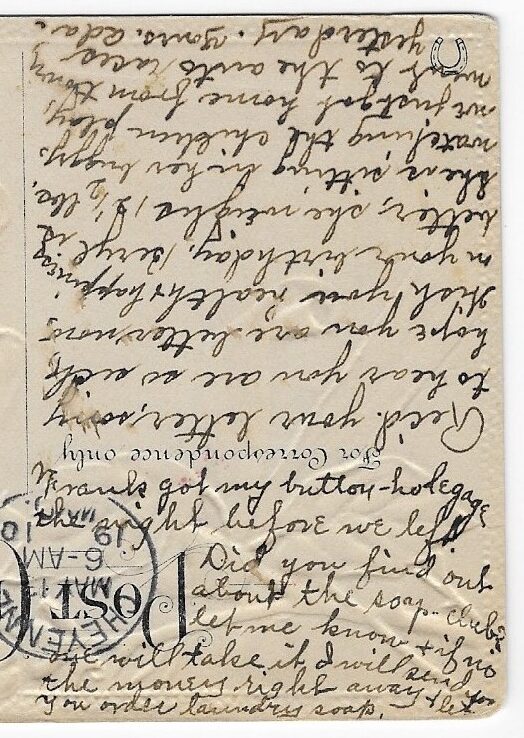 For Correspondence only
Rec'd your letter, sorry
to hear you are so sick
hope you are better now
Wish you health & happiness
on your birthday, Beryl is
better, she weighs 12 1/2 lbs,
She is sitting in her buggy
watching the children play,
we just got home from town
went to the auto races
yesterday. Yours, Ada.
my button-hole gage
the night before we left
Did you find out
about the soap-club?
let me know & if no
one will take it I will send
the money right away & let
you order laundry soap.
POST
CHEYENNE, W
MAY 13
6-AM
19 10